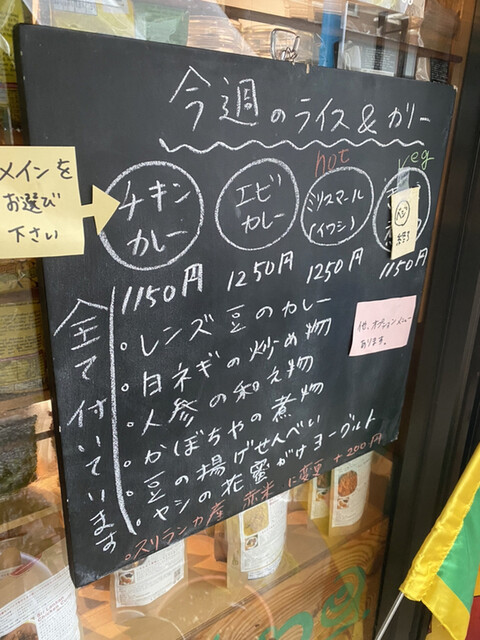 今週のライス&カリー
メインを
お選び
下さい
チキン
カレー
エビ
カレー
hot
ミリスマール
(イワシ)
veg
終了
1150円
1250円
1250円
1150円
全て付いています
。レンズ豆のカレー
。白ネギの炒め物
。人参の和え物
。かぼちゃの煮物
。豆の揚げせんべい
。ヤシの花蜜がけヨーグルト
。スリランカ産 赤米 に変更 +200円
他、オプションメニュー
あります。